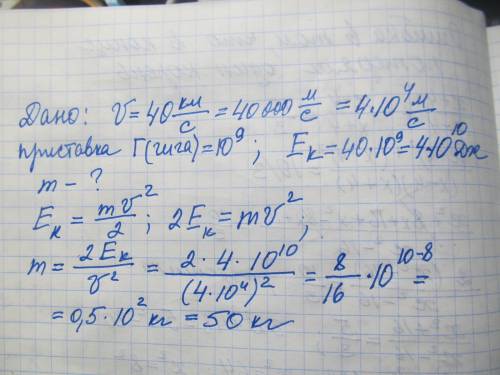 Дано: V=40 км/с = 40 000 м/с = 4·10⁴ м/с
приставка Г(гига)=10⁹ ; Eк=40·10⁹=4·10¹⁰ Дж
m - ?
Eк = mv²/2 ; 2Eк = mv² ;
m = 2Eк/v² = 2·4·10¹⁰/(4·10⁴)² = 8/16 ·10¹⁰⁻⁸ =
= 0,5·10² кг = 50 кг